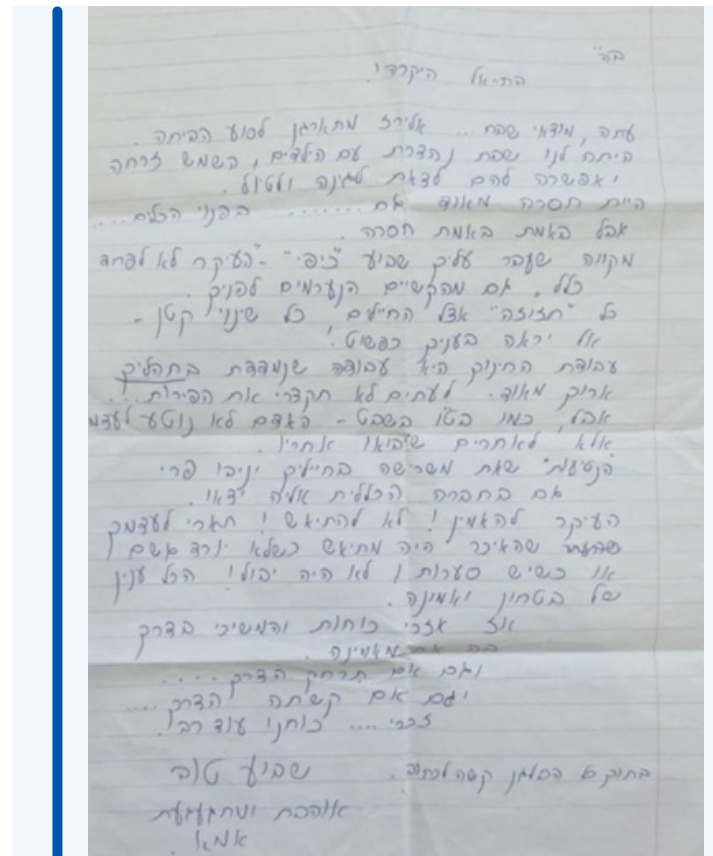 בס"ד
בת-אל היקרה!
עתה, מוצאי שבת... אלירז מתארגן לסוע הביתה.
היתה לנו שבת נהדרת עם הילדים, השמש זרחה
ואפשרה להם לצאת לגינה ולטיול.
היית חסרה מאוד גם ........ בפינוי הכלים....
אבל באמת באמת חסרה.
מקווה שעבר עליך שבוע "כיפי" - העיקר לא לפחד
כלל. גם מהקשיים הנערמים לפניך.
כל "תזוזה" אצל החיילים, כל שינוי קטן -
אל יראה בעניך כפשוט!
עבודת החינוך היא עבודה שנמדדת בתהליך
ארוך מאוד. לעתים לא תקצרי את הפירות...
אבל, כמו בט"ו בשבט - האדם לא נוטע לעצמו
אלא לאחרים שיבואו אחריו.
"הנטיעות" שאת משרישה בחייליך יניבו פרי
גם בחברה הכללית אליה יצאו.
העיקר להאמין! לא להתיאש! תארי לעצמך
שהאיכר היה מתיאש כשלא יורד גשם
או כשיש סערות! לא היה יבול! הכל ענין
של בטחון ואמונה.
אז אזרי כוחות והמשיכי בדרך
בה את מאמינה.
וגם אם תרחק הדרך.....
וגם אם קשתה הדרך....
זכרי.... כוחנו עוד רב!
הבלגן קשה לכתוב. שבוע טוב
אוהבת ומתגעגעת
אמא.